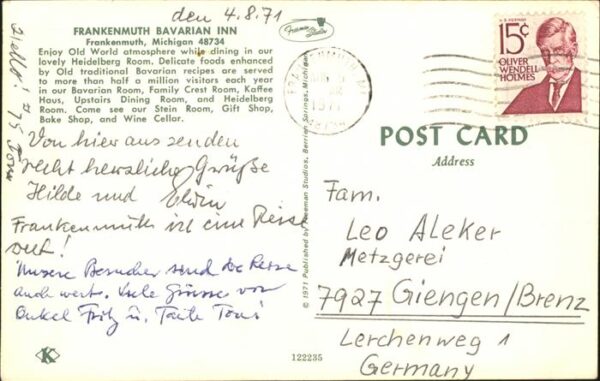 den 4.8.71
FRANKENMUTH BAVARIAN INN
Frankenmuth, Michigan 48734
Enjoy Old World atmosphere while dining in our
lovely Heidelberg Room. Delicate foods enhanced
by Old traditional Bavarian recipes are served
to more than half a million visitors each year
in our Bavarian Room, Family Crest Room, Kaffee
Haus, Upstairs Dining Room, and Heidelberg
Room. Come see our Stein Room, Gift Shop,
Bake Shop, and Wine Cellar.
Von hier aus senden
recht herzliche Grüße
Hilde und Erwin
Frankenmuth ist eine Reise
wert!
Unsere Besucher sind die Reise
auch wert. Viele Grüsse von
Onkel Fritz u. Tante Toni
K
© 1971 Published by Freeman Studios, Berrien Springs, Michigan
122235
1971
U.S. POSTAGE
15¢
OLIVER
WENDELL
HOLMES
POST CARD
Address
Fam.
Leo Aleker
Metzgerei
7927 Giengen/Brenz
Lerchenweg 1
Germany